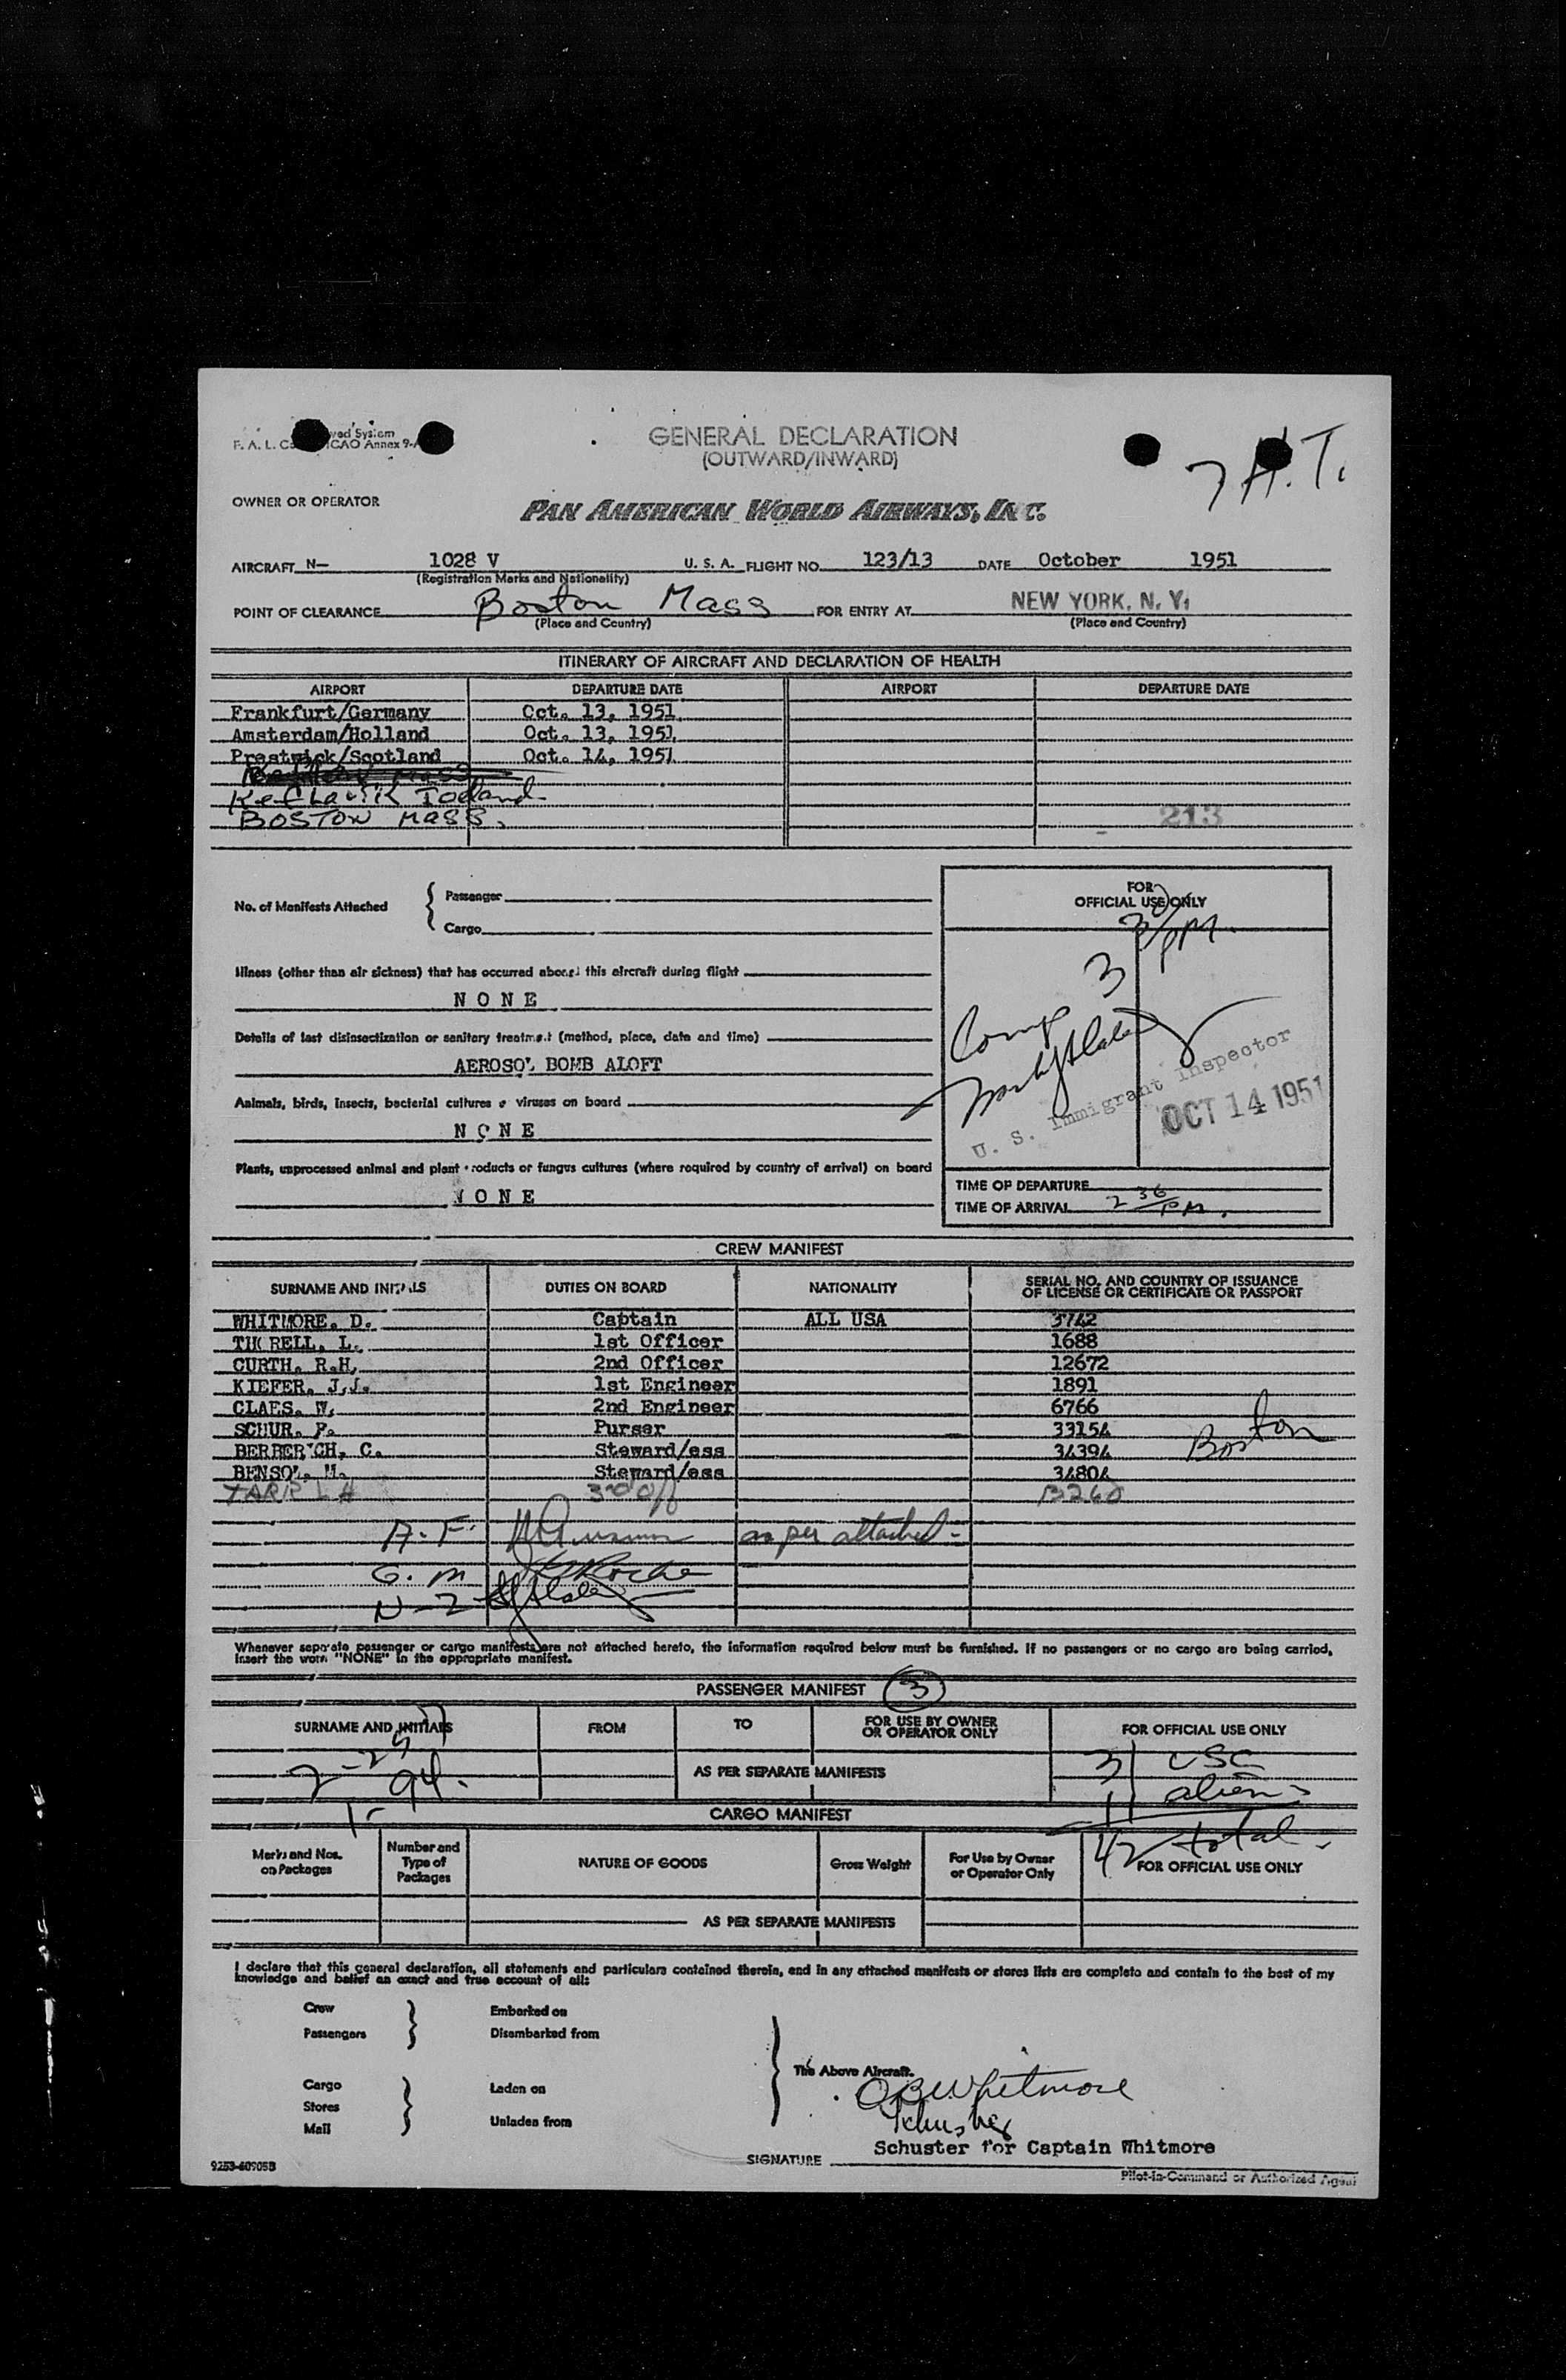 GENERAL DECLARATION
(OUTWARD/INWARD)
7 H.T.
F. A. L. ICAO Annex 9-
OWNER OR OPERATOR
PAN AMERICAN WORLD AIRWAYS, INC.
AIRCRAFT N— 1028 V U. S. A. FLIGHT NO. 123/13 DATE October 1951
(Registration Marks and Nationality)
POINT OF CLEARANCE Boston Mass FOR ENTRY AT NEW YORK, N. Y.
(Place and Country) (Place and Country)
ITINERARY OF AIRCRAFT AND DECLARATION OF HEALTH
AIRPORT DEPARTURE DATE AIRPORT DEPARTURE DATE
Frankfurt/Germany Oct. 13, 1951
Amsterdam/Holland Oct. 13, 1951
Prestwick/Scotland Oct. 14, 1951
Keflavik Iceland
BOSTON MASS. 213
No. of Manifests Attached
Passenger
Cargo
FOR
OFFICIAL USE ONLY
Illness (other than air sickness) that has occurred aboard this aircraft during flight
NONE
Details of last disinsectization or sanitary treatment (method, place, date and time)
AEROSOL BOMB ALOFT
Animals, birds, insects, bacterial cultures or viruses on board
NONE
Plants, unprocessed animal and plant products or fungus cultures (where required by country of arrival) on board
NONE
U. S. Immigrant Inspector
OCT 14 1951
TIME OF DEPARTURE
TIME OF ARRIVAL 2 36 PM.
CREW MANIFEST
SURNAME AND INITIALS DUTIES ON BOARD NATIONALITY SERIAL NO. AND COUNTRY OF ISSUANCE OF LICENSE OR CERTIFICATE OR PASSPORT
WHITMORE. D. Captain ALL USA 3742
THORELL, L. 1st Officer 1688
CURTH. R.H. 2nd Officer 12672
KIEFER. J.J. 1st Engineer 1891
CLAES. W. 2nd Engineer 6766
SCHUR. F. Purser 33154
BERBERICH, C. Steward/ess 34394 Boston
BENSOL. M. Steward/ess 34804
TARR L H 3rd Off
A. F. as per attached
G. M
N-2
Whenever separate passenger or cargo manifests are not attached hereto, the information required below must be furnished. If no passengers or no cargo are being carried,
insert the word "NONE" in the appropriate manifest.
PASSENGER MANIFEST 3
SURNAME AND INITIALS FROM TO FOR USE BY OWNER OR OPERATOR ONLY FOR OFFICIAL USE ONLY
31 USC
AS PER SEPARATE MANIFESTS
11 aliens
CARGO MANIFEST
42 total
Marks and Nos. on Packages Number and Type of Packages NATURE OF GOODS Gross Weight For Use by Owner or Operator Only FOR OFFICIAL USE ONLY
AS PER SEPARATE MANIFESTS
I declare that this general declaration, all statements and particulars contained therein, and in any attached manifests or stores lists are complete and contain to the best of my
knowledge and belief an exact and true account of all:
Crew Embarked on
Passengers Disembarked from
The Above Aircraft.
Cargo Laden on
Stores
Mail Unladen from
Whitmore
Schuster
Schuster for Captain Whitmore
SIGNATURE
9253-60905B Pilot-in-Command or Authorized Agent